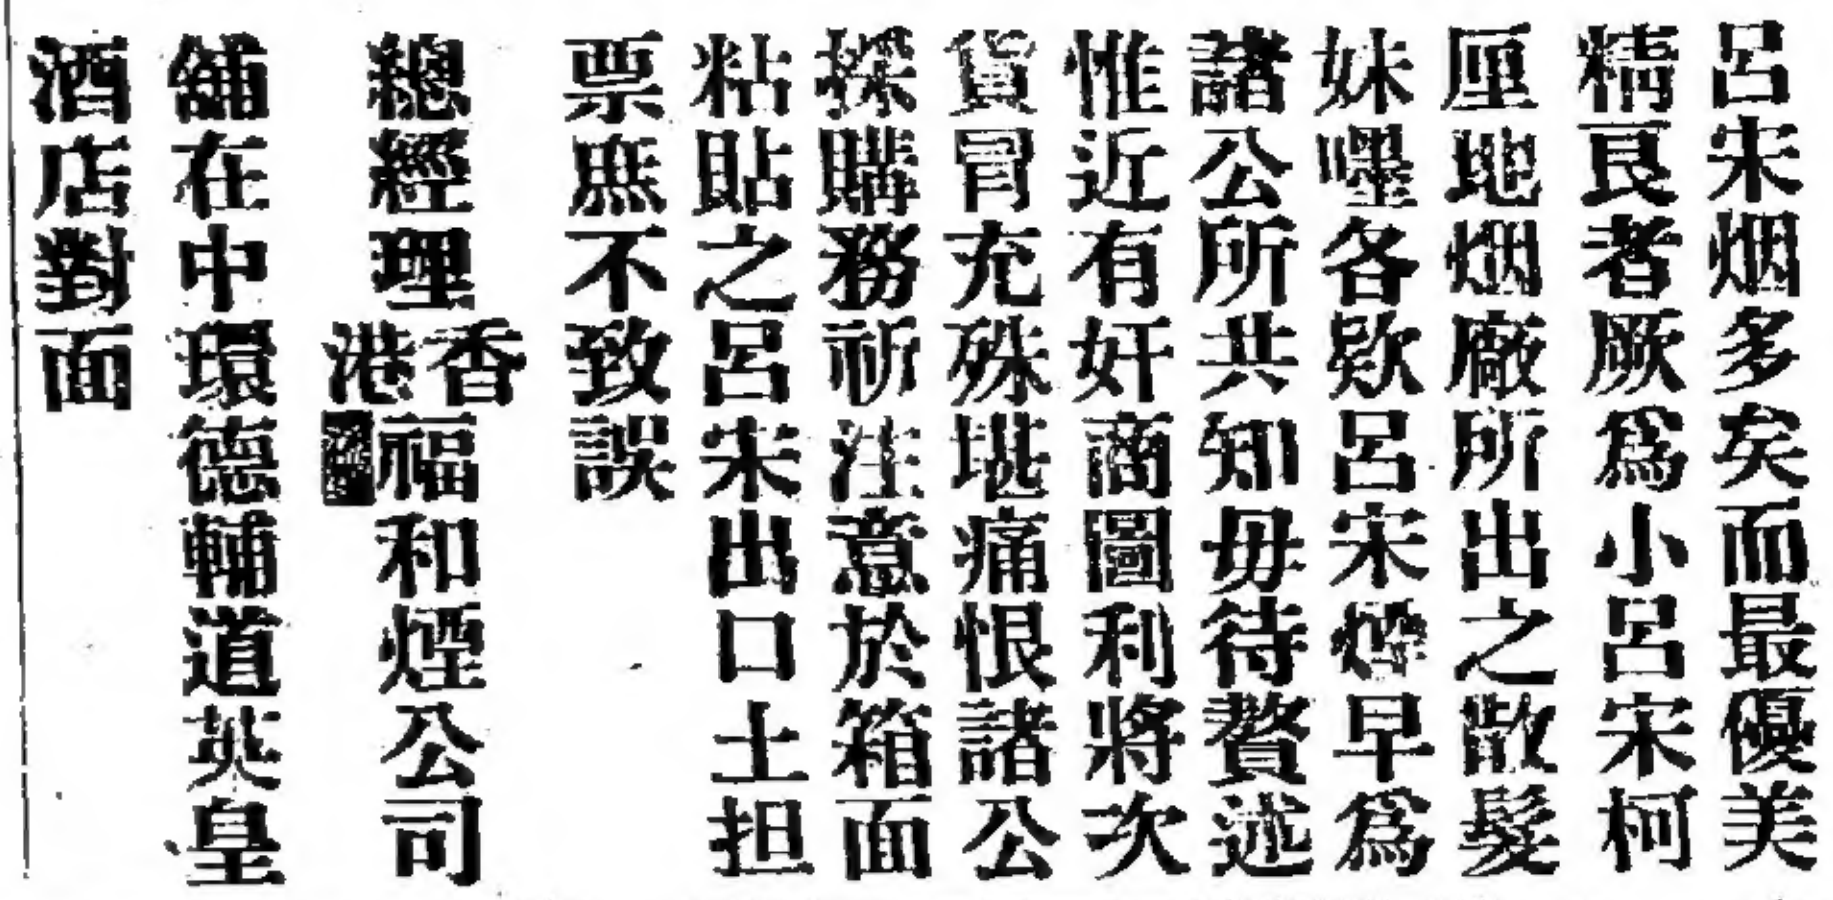 呂宋烟多矣而最優美
精良者厥爲小呂宋柯
厘地烟廠所出之散髮
妹嚜各欵呂宋煙早爲
諸公所共知毋待贅述
惟近有奸商圖利將次
貨冒充殊堪痛恨諸公
採購務祈注意於箱面
粘貼之呂宋出口土担
票庶不致誤
總經理香港福和煙公司
舖在中環德輔道英皇
酒店對面